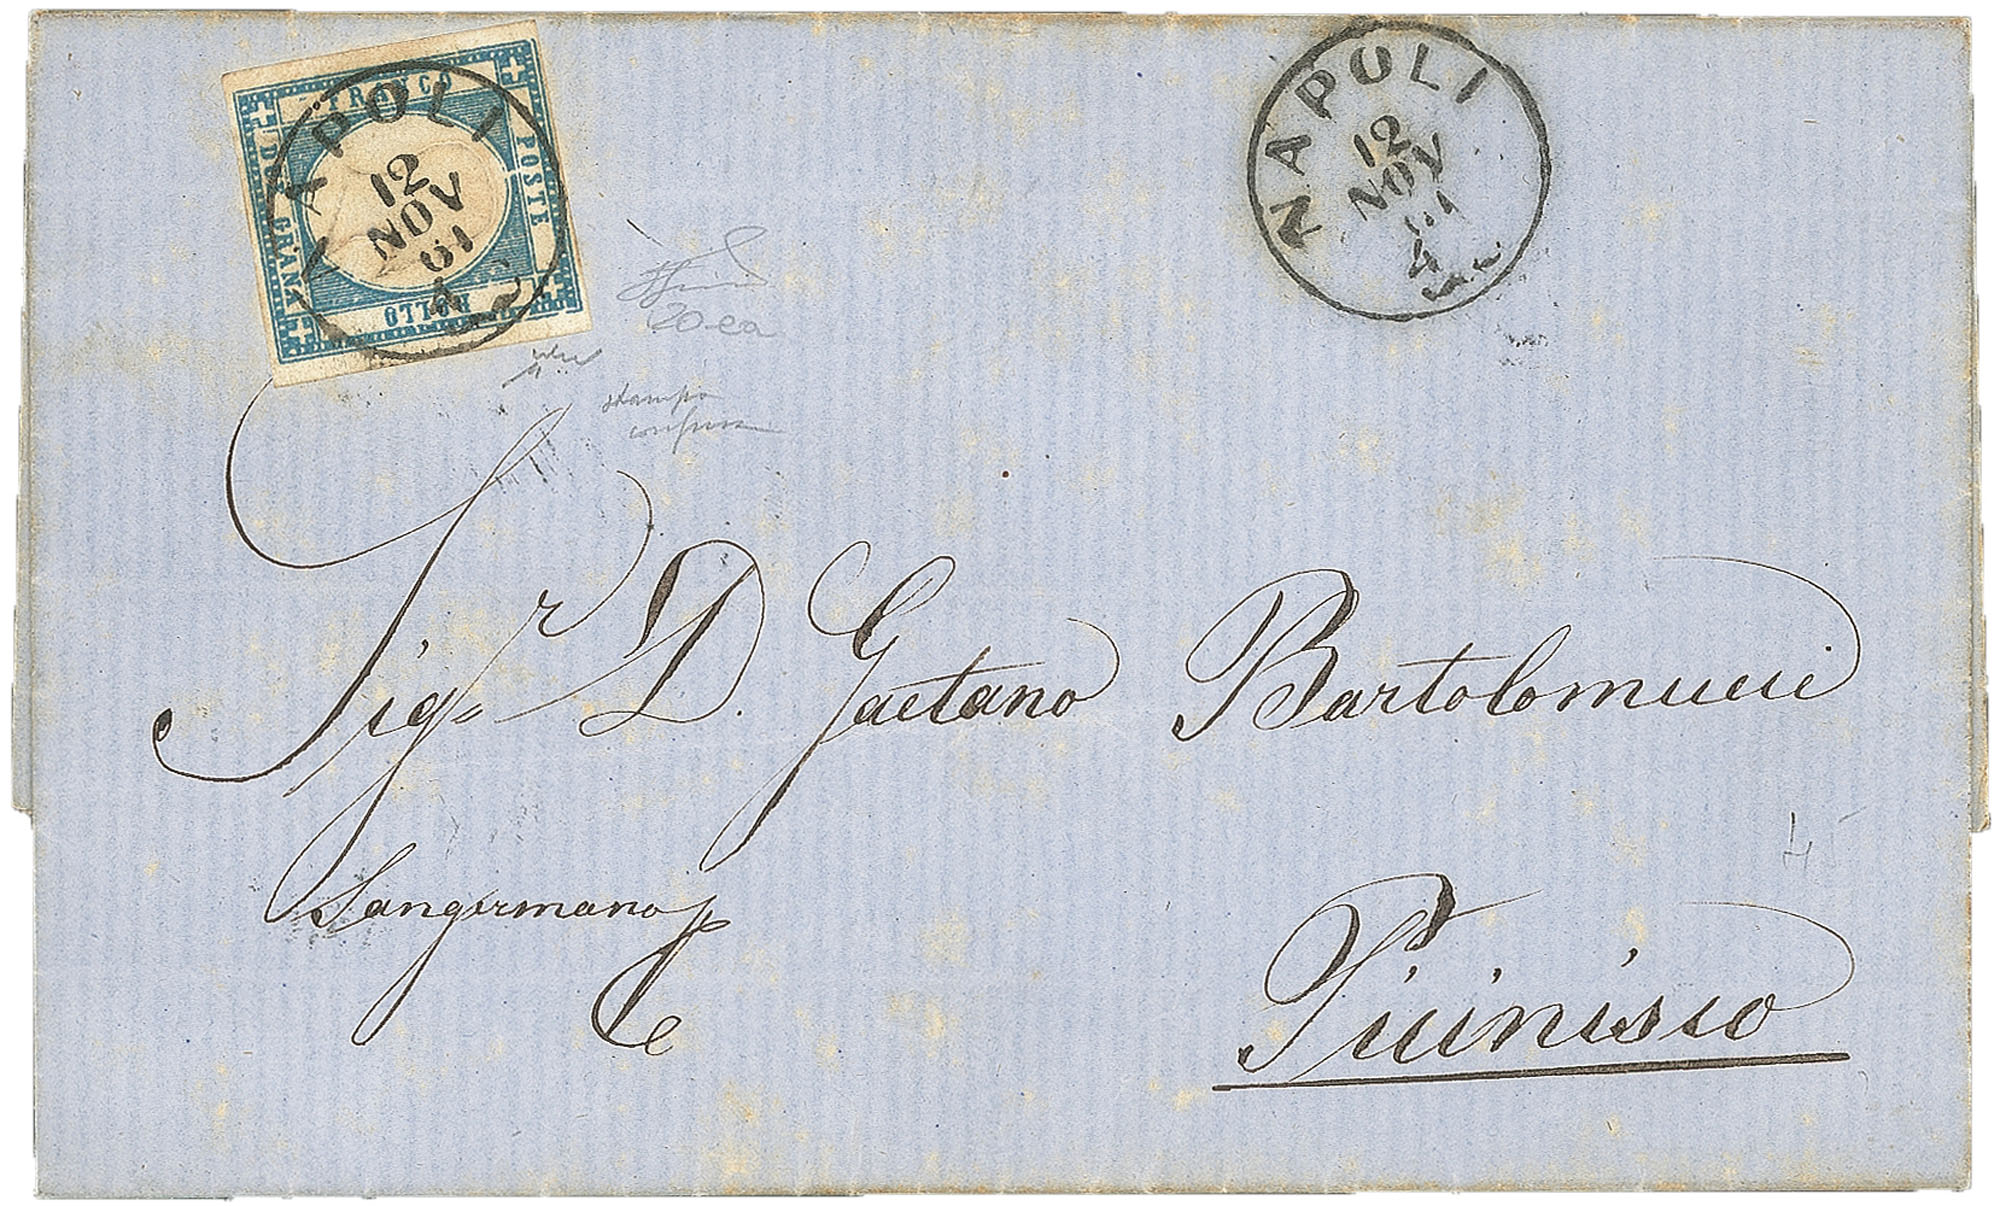 FRANCO
POSTE
BOLLO
DUE GRANA
NAPOLI
12
NOV
61
4 S
NAPOLI
12
NOV
61
4 S
20.ea
stampa
confusa
Sigr D. Gaetano Bartolomucci
Sangermano p
Picinisco
45